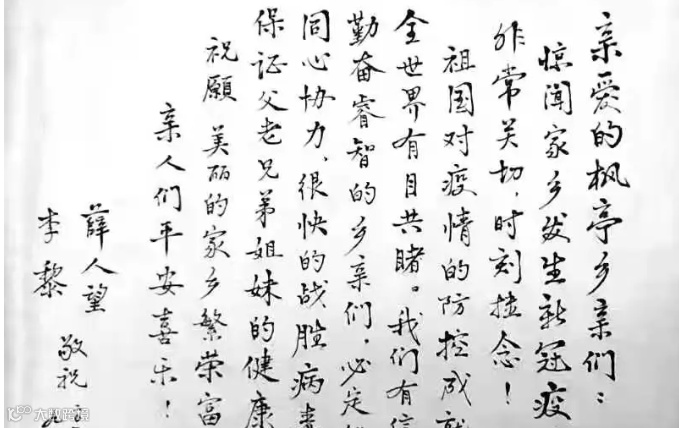 亲爱的枫亭乡亲们：
惊闻家乡发生新冠疫
非常关切，时刻挂念！
祖国对疫情的防控成就
全世界有目共睹。我们有信
勤奋睿智的乡亲们，必定
同心协力，很快的战胜病毒
保证父老兄弟姐妹的健康
祝愿 美丽的家乡繁荣富
亲人们平安喜乐！
薛人望
李黎 敬祝
大数跨境